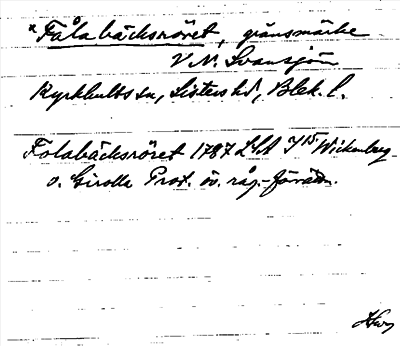 *Fålabäcksröret, gränsmärke
V. N. Svansjön
Kyrkhults sn, Listers hd, Blek. l.
Folabäcksröret 1787 LSA J15 Wickenberg
o. Girolla Prot. öv. råg.-förrätn.